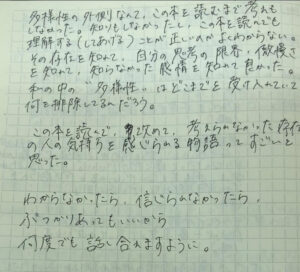 多様性の外側なんて、この本を読むまで考えも
しなかった。知りもしなかったし、この本を読んでも
理解する(してあげる)ことが正しいのかよくわからない。
その存在を知れて、自分の思考の限界、傲慢さ
を知れて、知らなかった感情を知れて良かった。
私の中の“多様性”はどこまでを受け入れていて
何を排除してるんだろう。
この本を読んで、改めて、考えられなかった存在
の人の気持ちを感じられる物語ってすごいと
思った。
わからなかったら、信じられなかったら、
ぶつかりあってもいいから
何度でも話し合えますように。